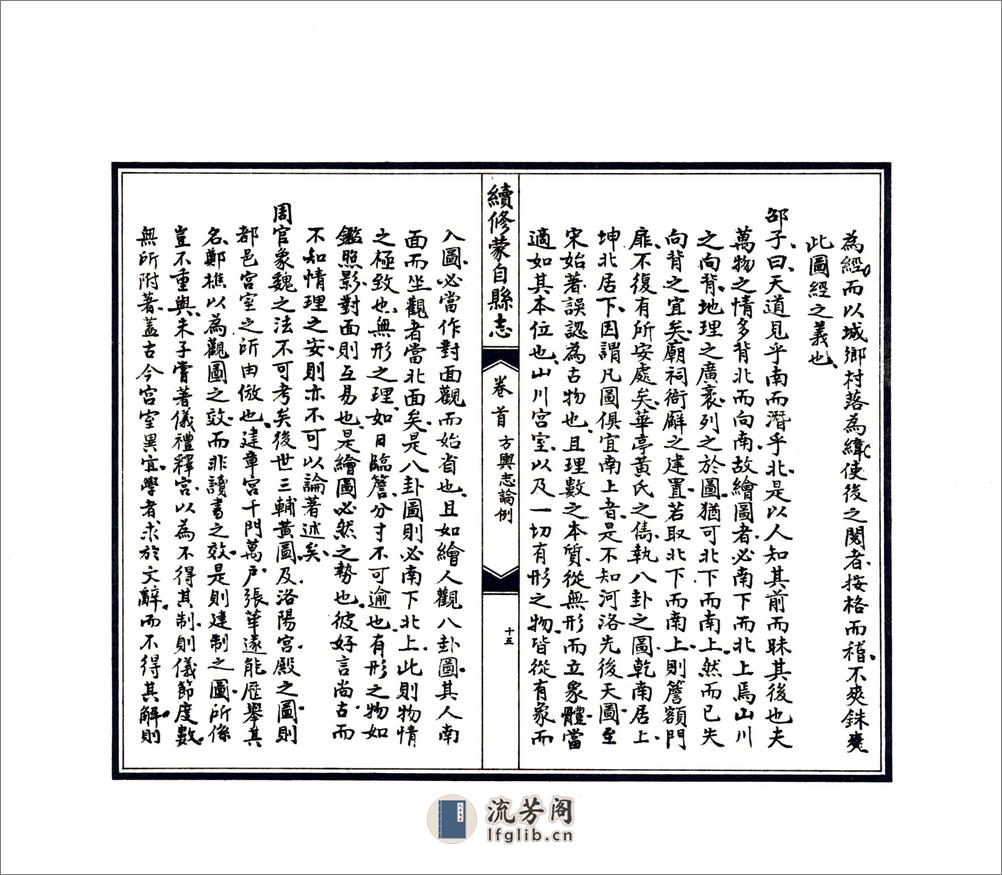 為經而以城鄉村落為緯使後之閱者按格而稽不爽銖黍
此圖經之義也
邵子曰天道見乎南而潛乎北是以人知其前而昧其後也夫
萬物之情多背北而向南故繪圖者必南下而北上焉山川
之向背地理之廣袤列之於圖猶可北下而南上然而已失
向背之宜矣廟祠衙廨之建置若取北下而南上則簷額門
扉不復有所安處矣華亭黃氏之儁執八卦之圖乾南居上
坤北居下因謂凡圖俱宜南上者是不知河洛先後天圖至
宋始著誤認為古物也且理數之本質從無形而立象體當
適如其本位也山川宮室以及一切有形之物皆從有象而
續修蒙自縣志
卷首 方輿志論例
十五
入圖必當作對面觀而始省也且如繪人觀八卦圖其人南
面而坐觀者當北面矣是八卦圖則必南下北上此則物情
之極致也無形之理如日臨簷分寸不可逾也有形之物如
鑑照影對面則互易也是繪圖必然之勢也彼好言尚古而
不知情理之安則亦不可以論著述矣
周官象魏之法不可考矣後世三輔黃圖及洛陽宮殿之圖則
都邑宮室之所由倣也建章宮千門萬戶張華遂能歷舉其
名鄭樵以為觀圖之效而非讀書之效是則建制之圖所係
豈不重與朱子嘗著儀禮釋宮以為不得其制則儀節度數
無所附著蓋古今宮室異宜學者求於文辭而不得其解則
流芳阁
lfglib.cn